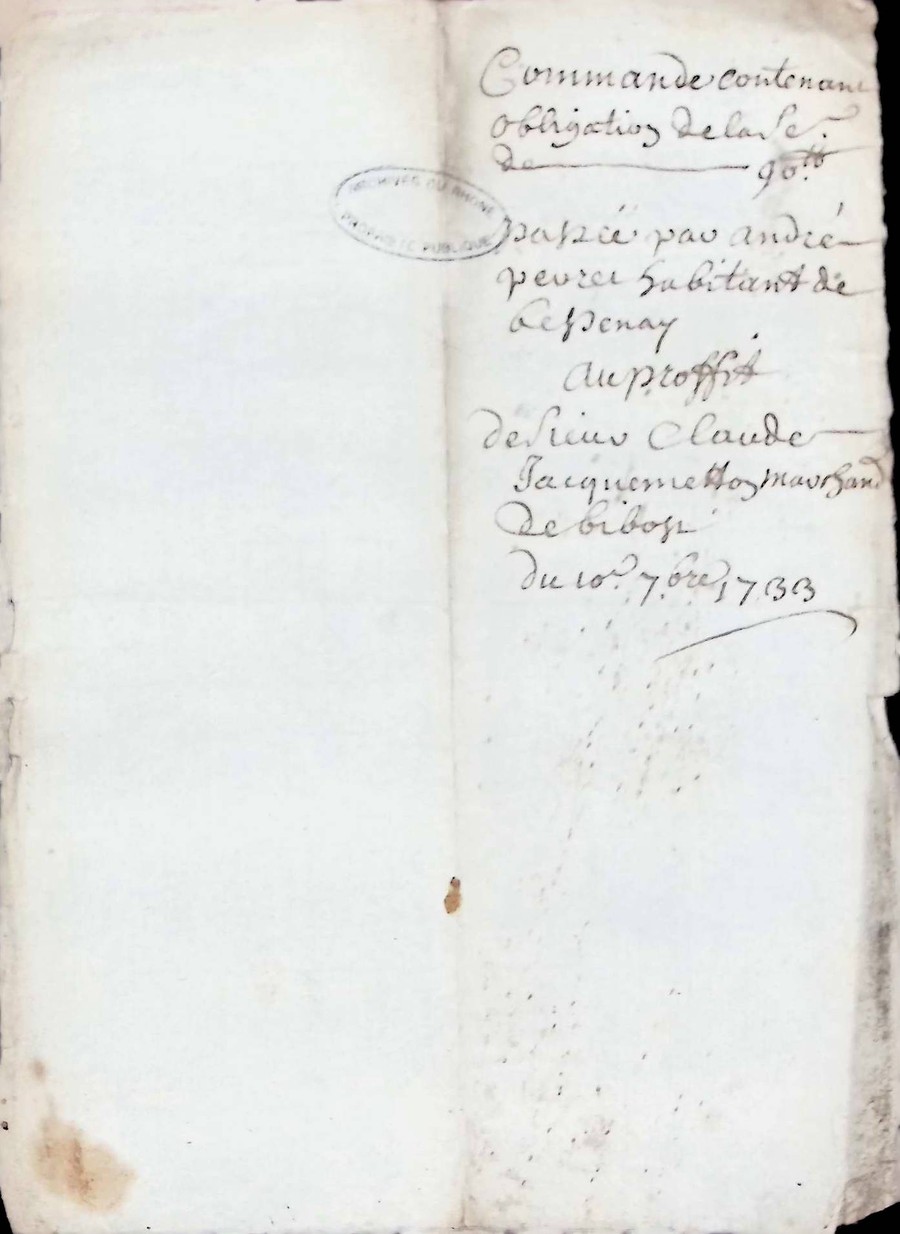 Commande contenant
obligation de la Se.
de 90.tt
ARCHIVES DU RHONE
PROPRIÉTÉ PUBLIQUE
passée par andré
peyret habitant de
bessenay
au proffit
de sieur Claude
Jacquemetton marchand
de bibost
du 10e. 7.bre 1733